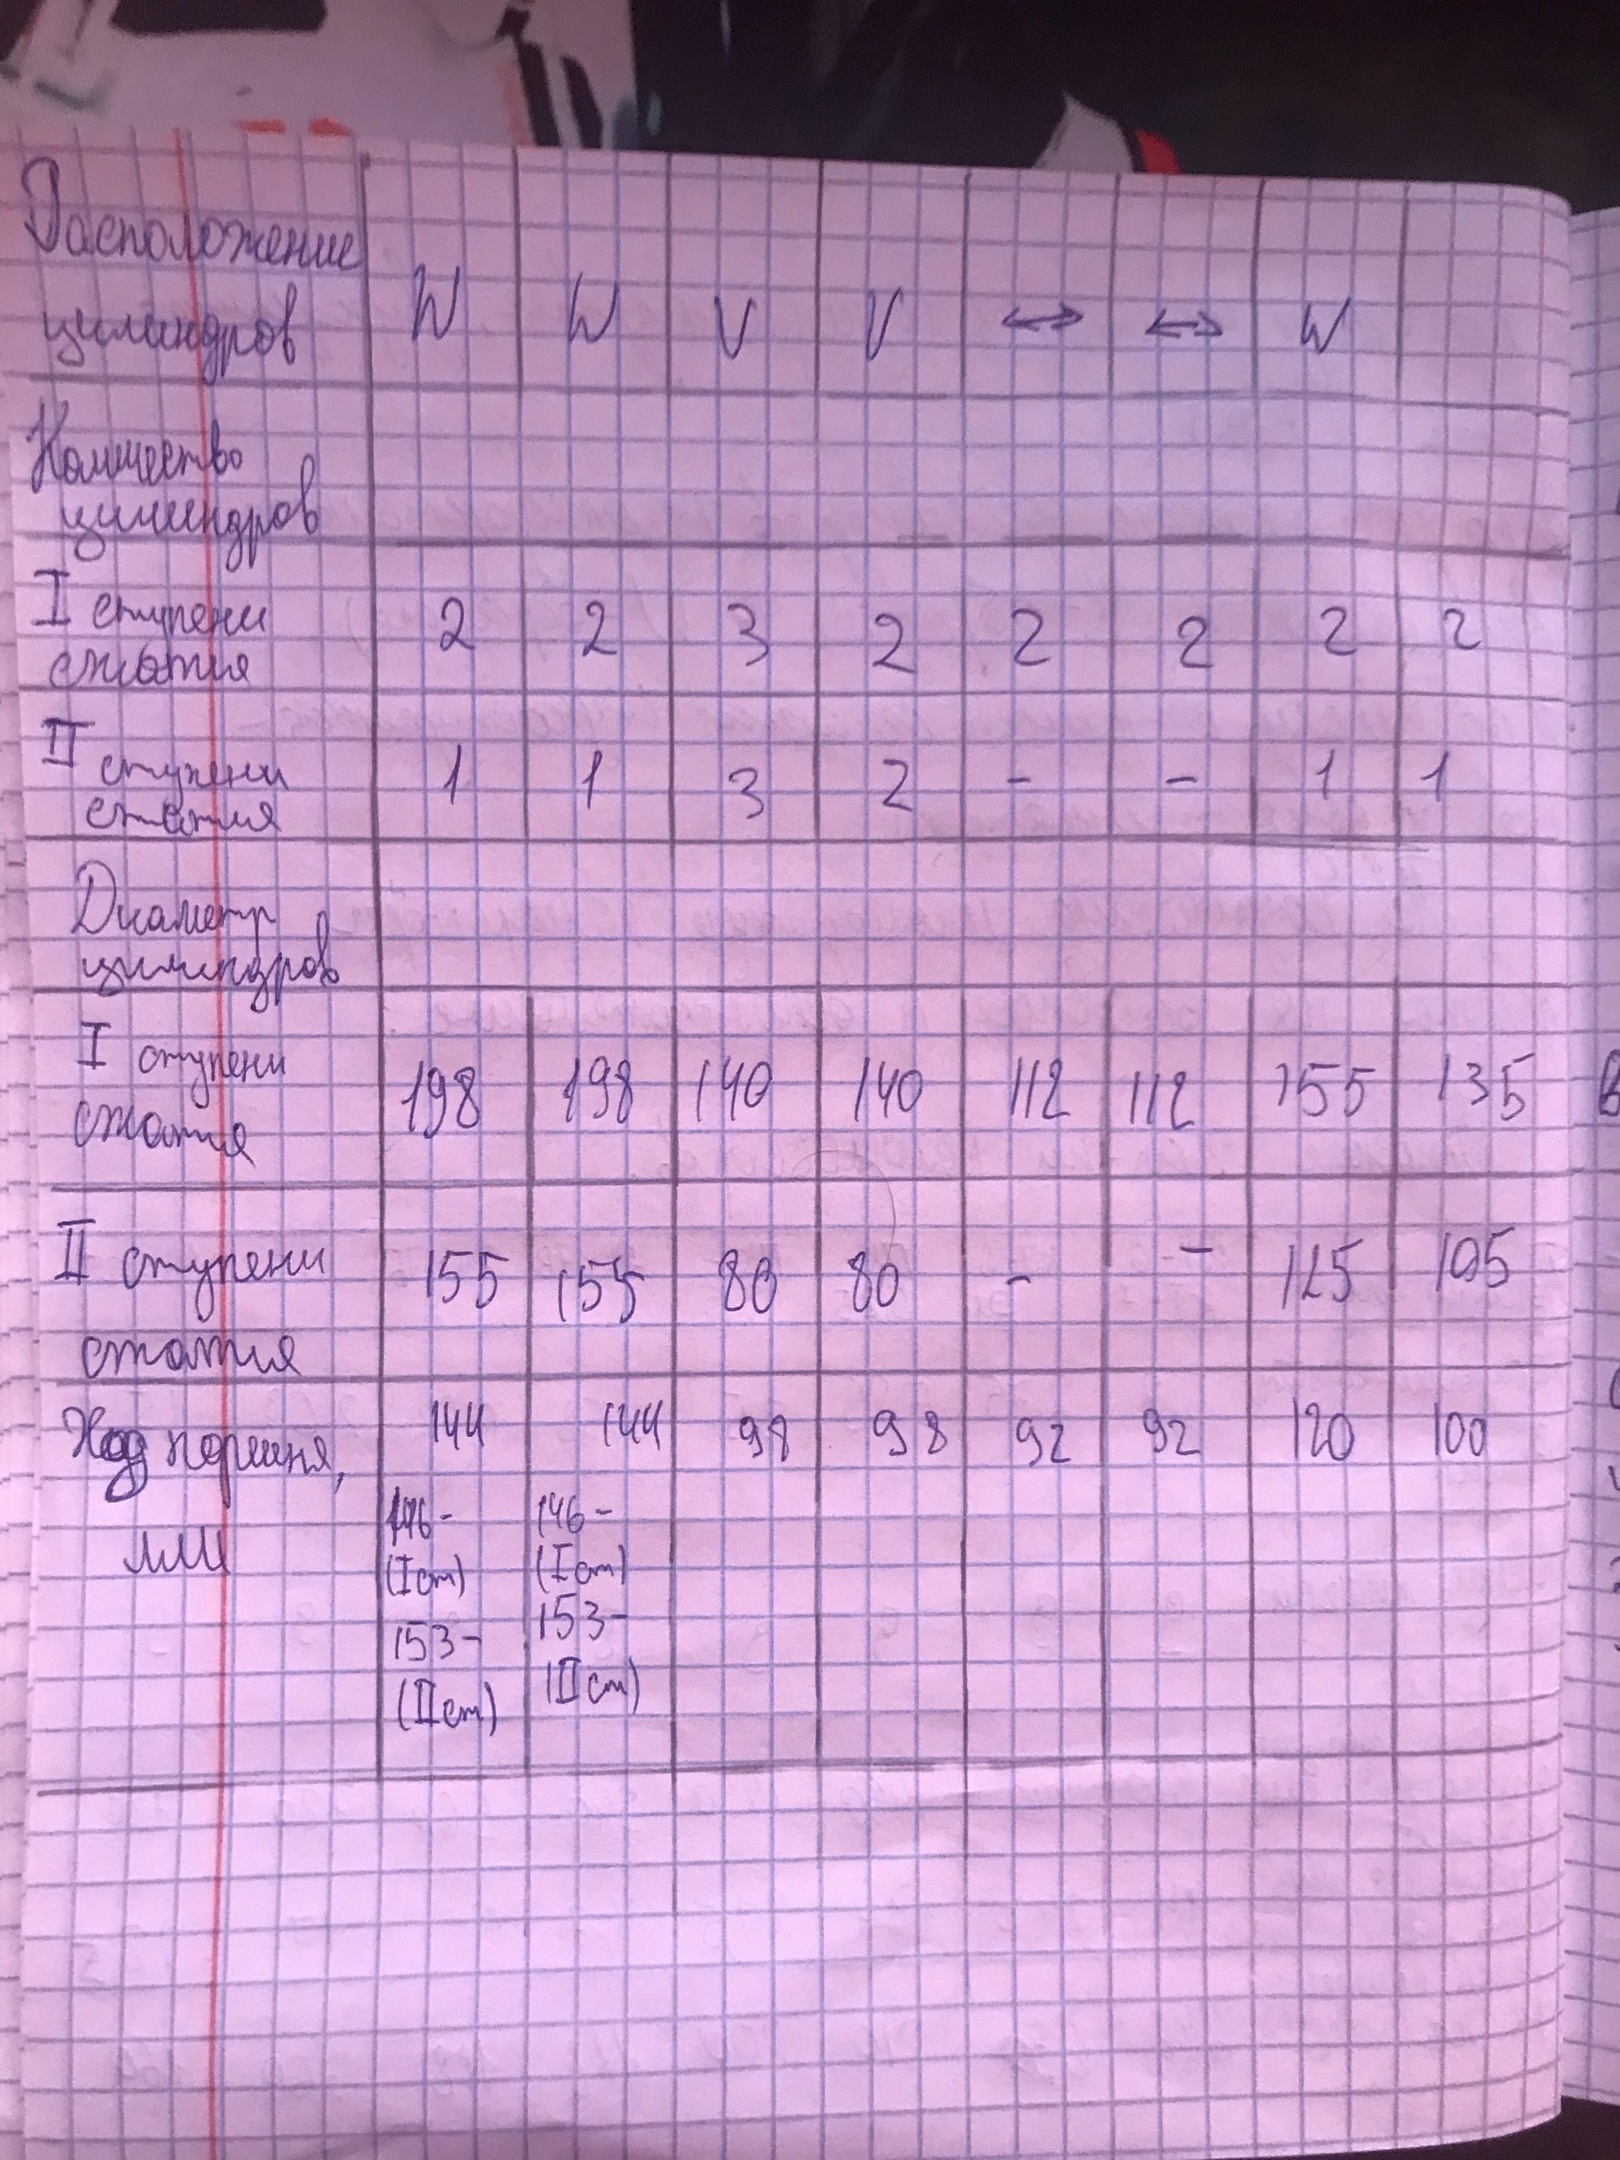 Расположение
цилиндров W W V V ↔ ↔ W
Количество
цилиндров
I ступени
сжатия 2 2 3 2 2 2 2 2
II ступени
сжатия 1 1 3 2 - - 1 1
Диаметр
цилиндров
I ступени
сжатия 198 198 140 140 112 112 155 135
II ступени
сжатия 155 155 80 80 - - 125 105
Ход поршня, 144 144 98 98 92 92 120 100
мм
146- 146-
(I ст) (I ст)
153- 153-
(II ст) (II ст)